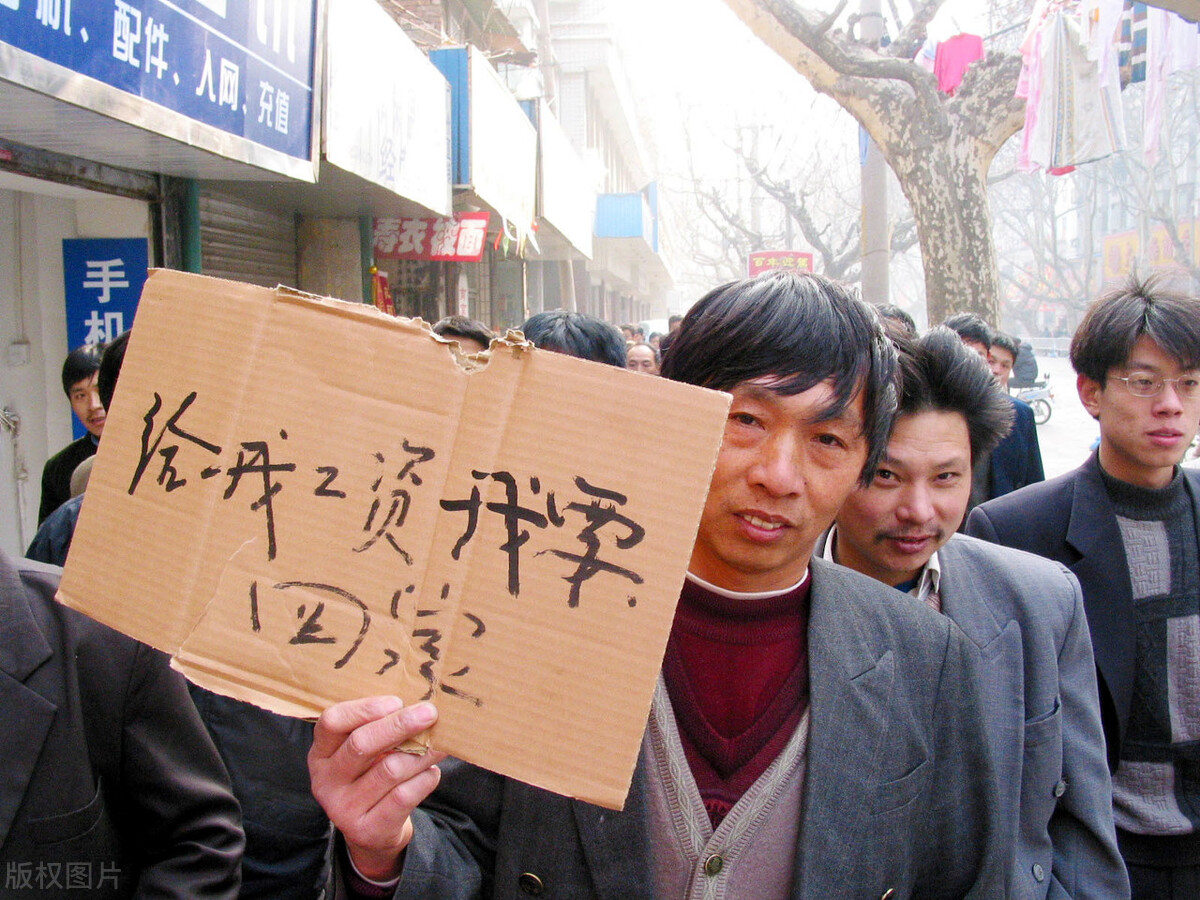 机、配件、入网、充值
手机
寿衣被面
给我工资我要
回家
版权图片